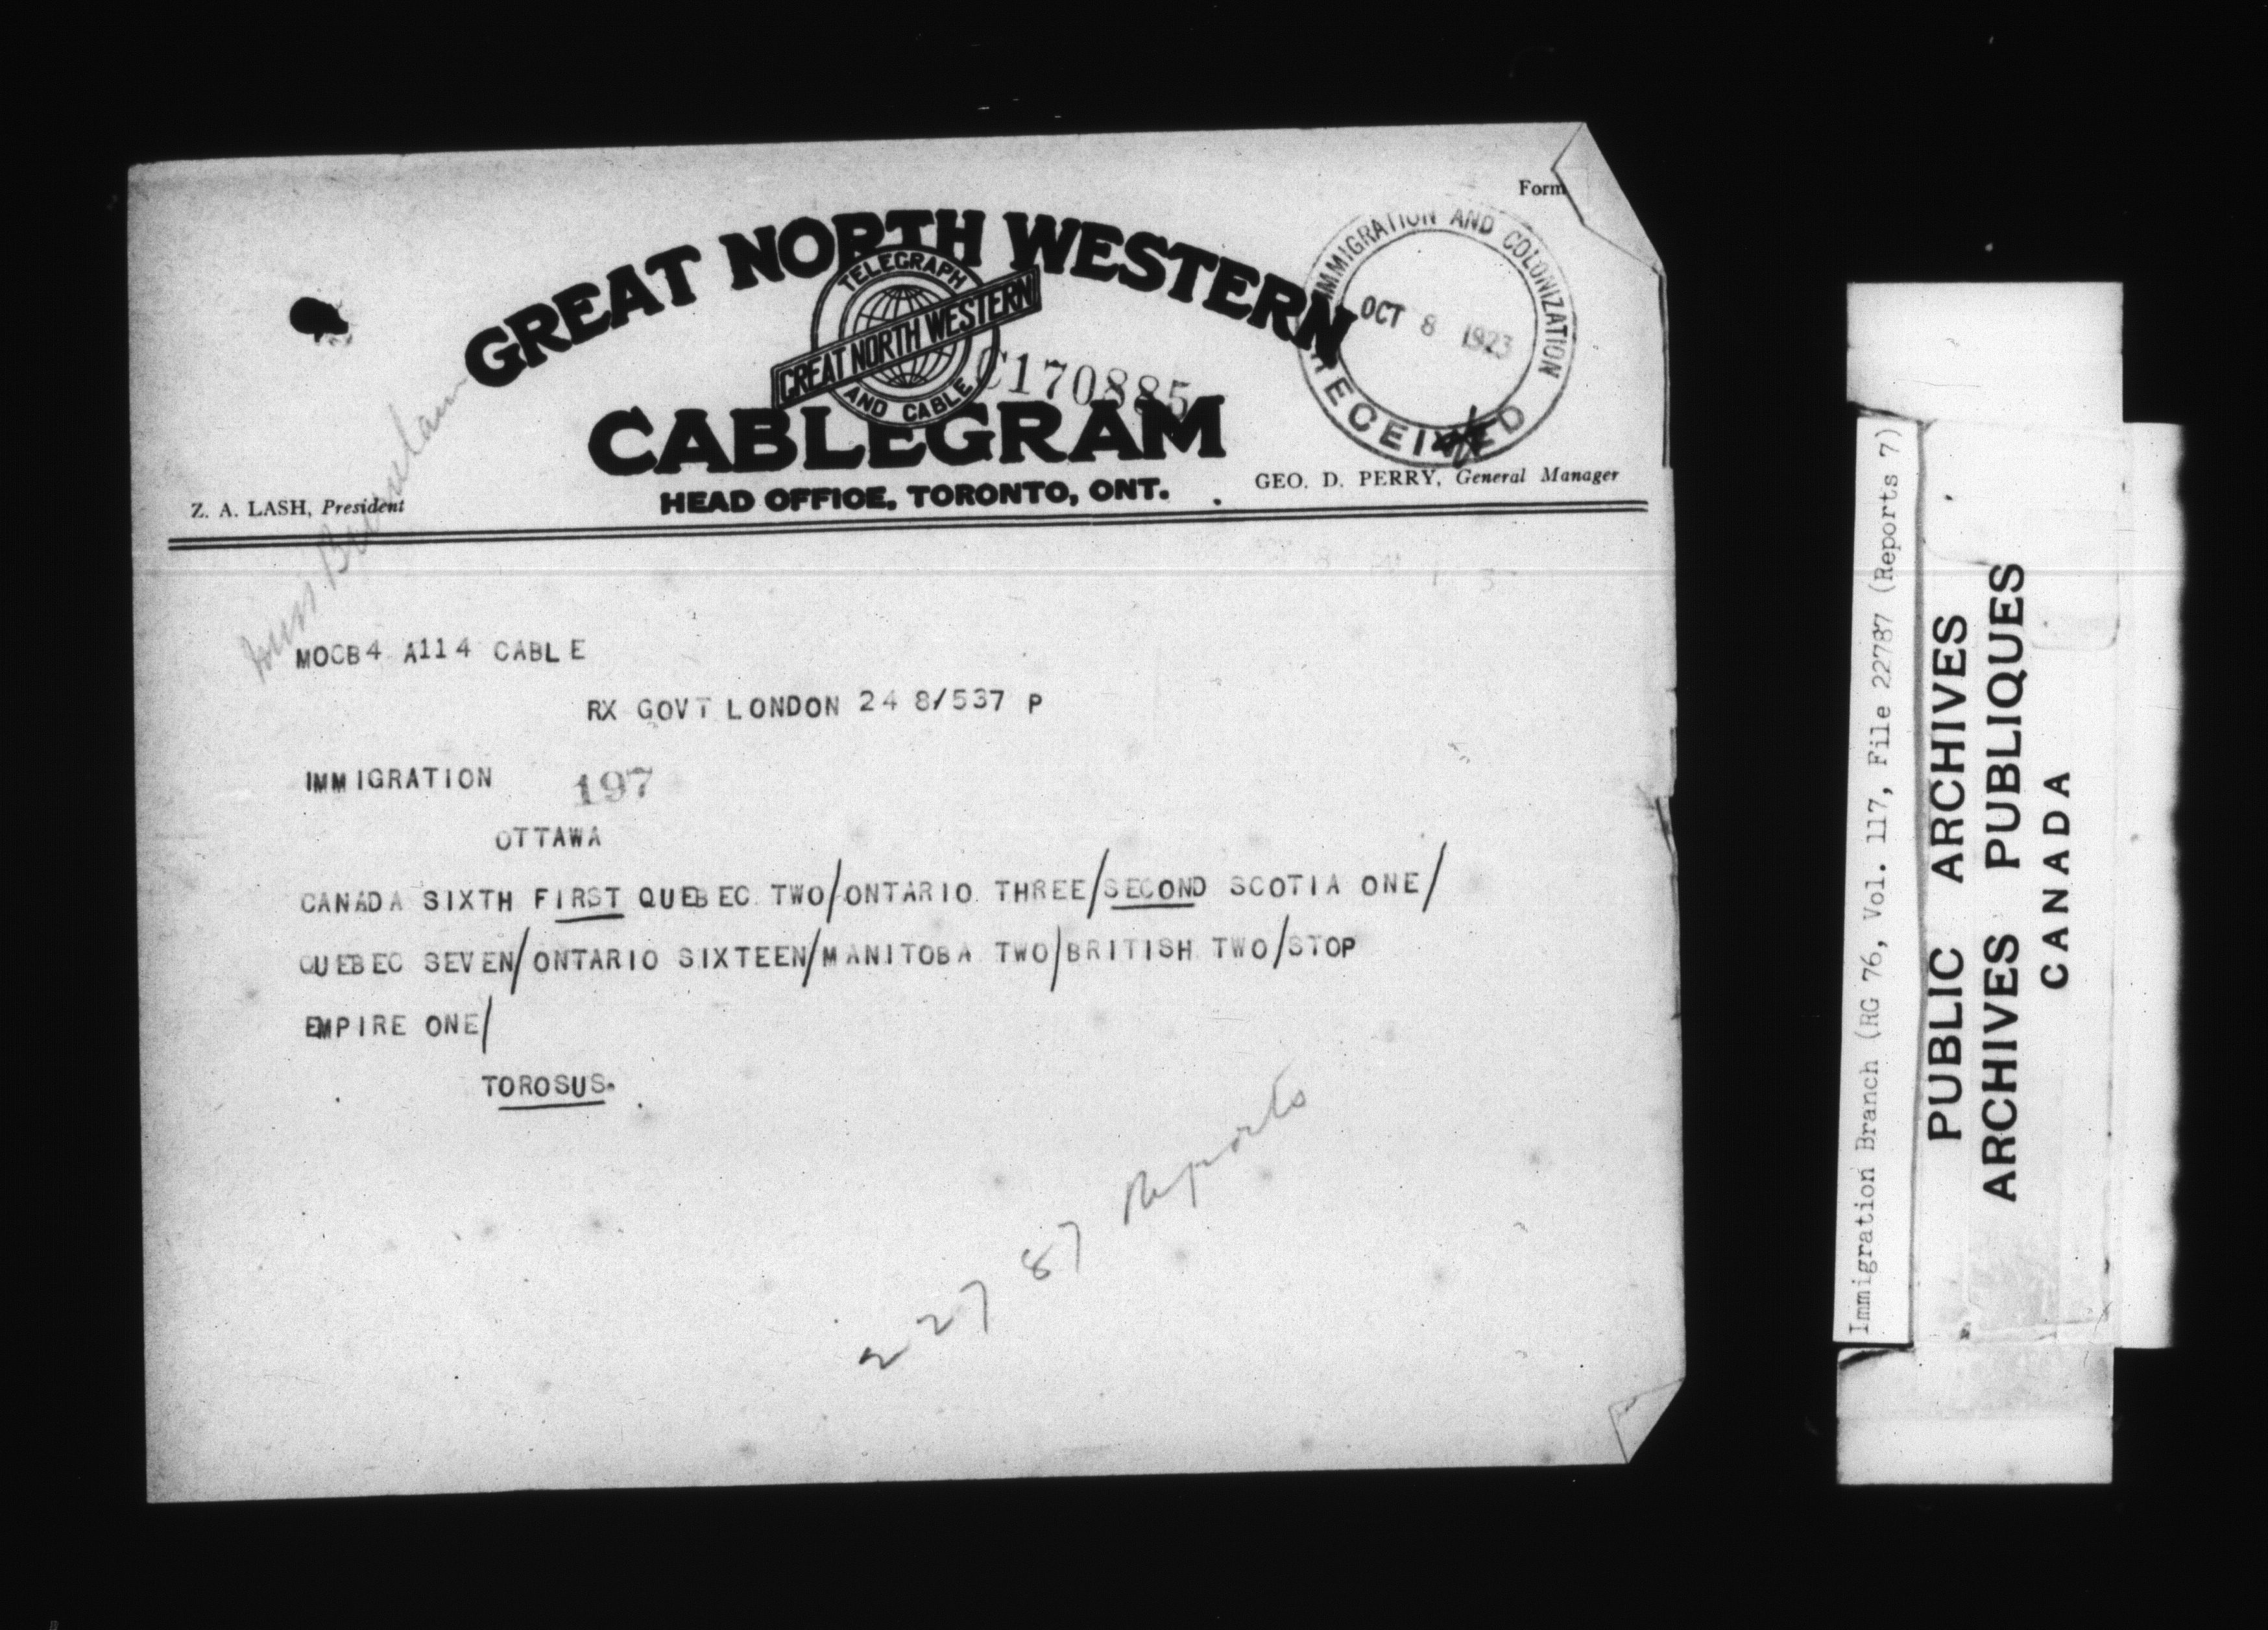 Form
GREAT NORTH WESTERN
TELEGRAPH
GREAT NORTH WESTERN
AND CABLE
C170885
CABLEGRAM
HEAD OFFICE, TORONTO, ONT.
Z. A. LASH, President
GEO. D. PERRY, General Manager
IMMIGRATION AND COLONIZATION
OCT 8 1923
RECEIVED
Miss
MOCB4 A114 CABLE
RX GOVT LONDON 24 8/537 P
IMMIGRATION 197
OTTAWA
CANADA SIXTH FIRST QUEBEC TWO/ONTARIO THREE/SECOND SCOTIA ONE/
QUEBEC SEVEN/ONTARIO SIXTEEN/MANITOBA TWO/BRITISH TWO/STOP
EMPIRE ONE/
TOROSUS.
22787 Reports
Immigration Branch (RG 76, Vol. 117, File 22787 (Reports 7)
PUBLIC ARCHIVES
ARCHIVES PUBLIQUES
CANADA